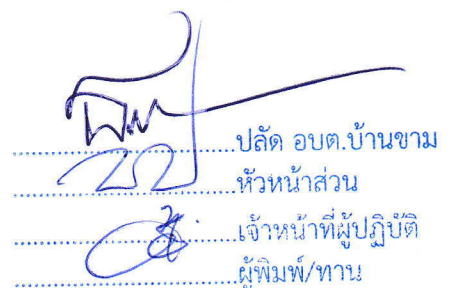 ปลัด อบต.บ้านขาม
หัวหน้าส่วน
เจ้าหน้าที่ผู้ปฏิบัติ
ผู้พิมพ์/ทาน